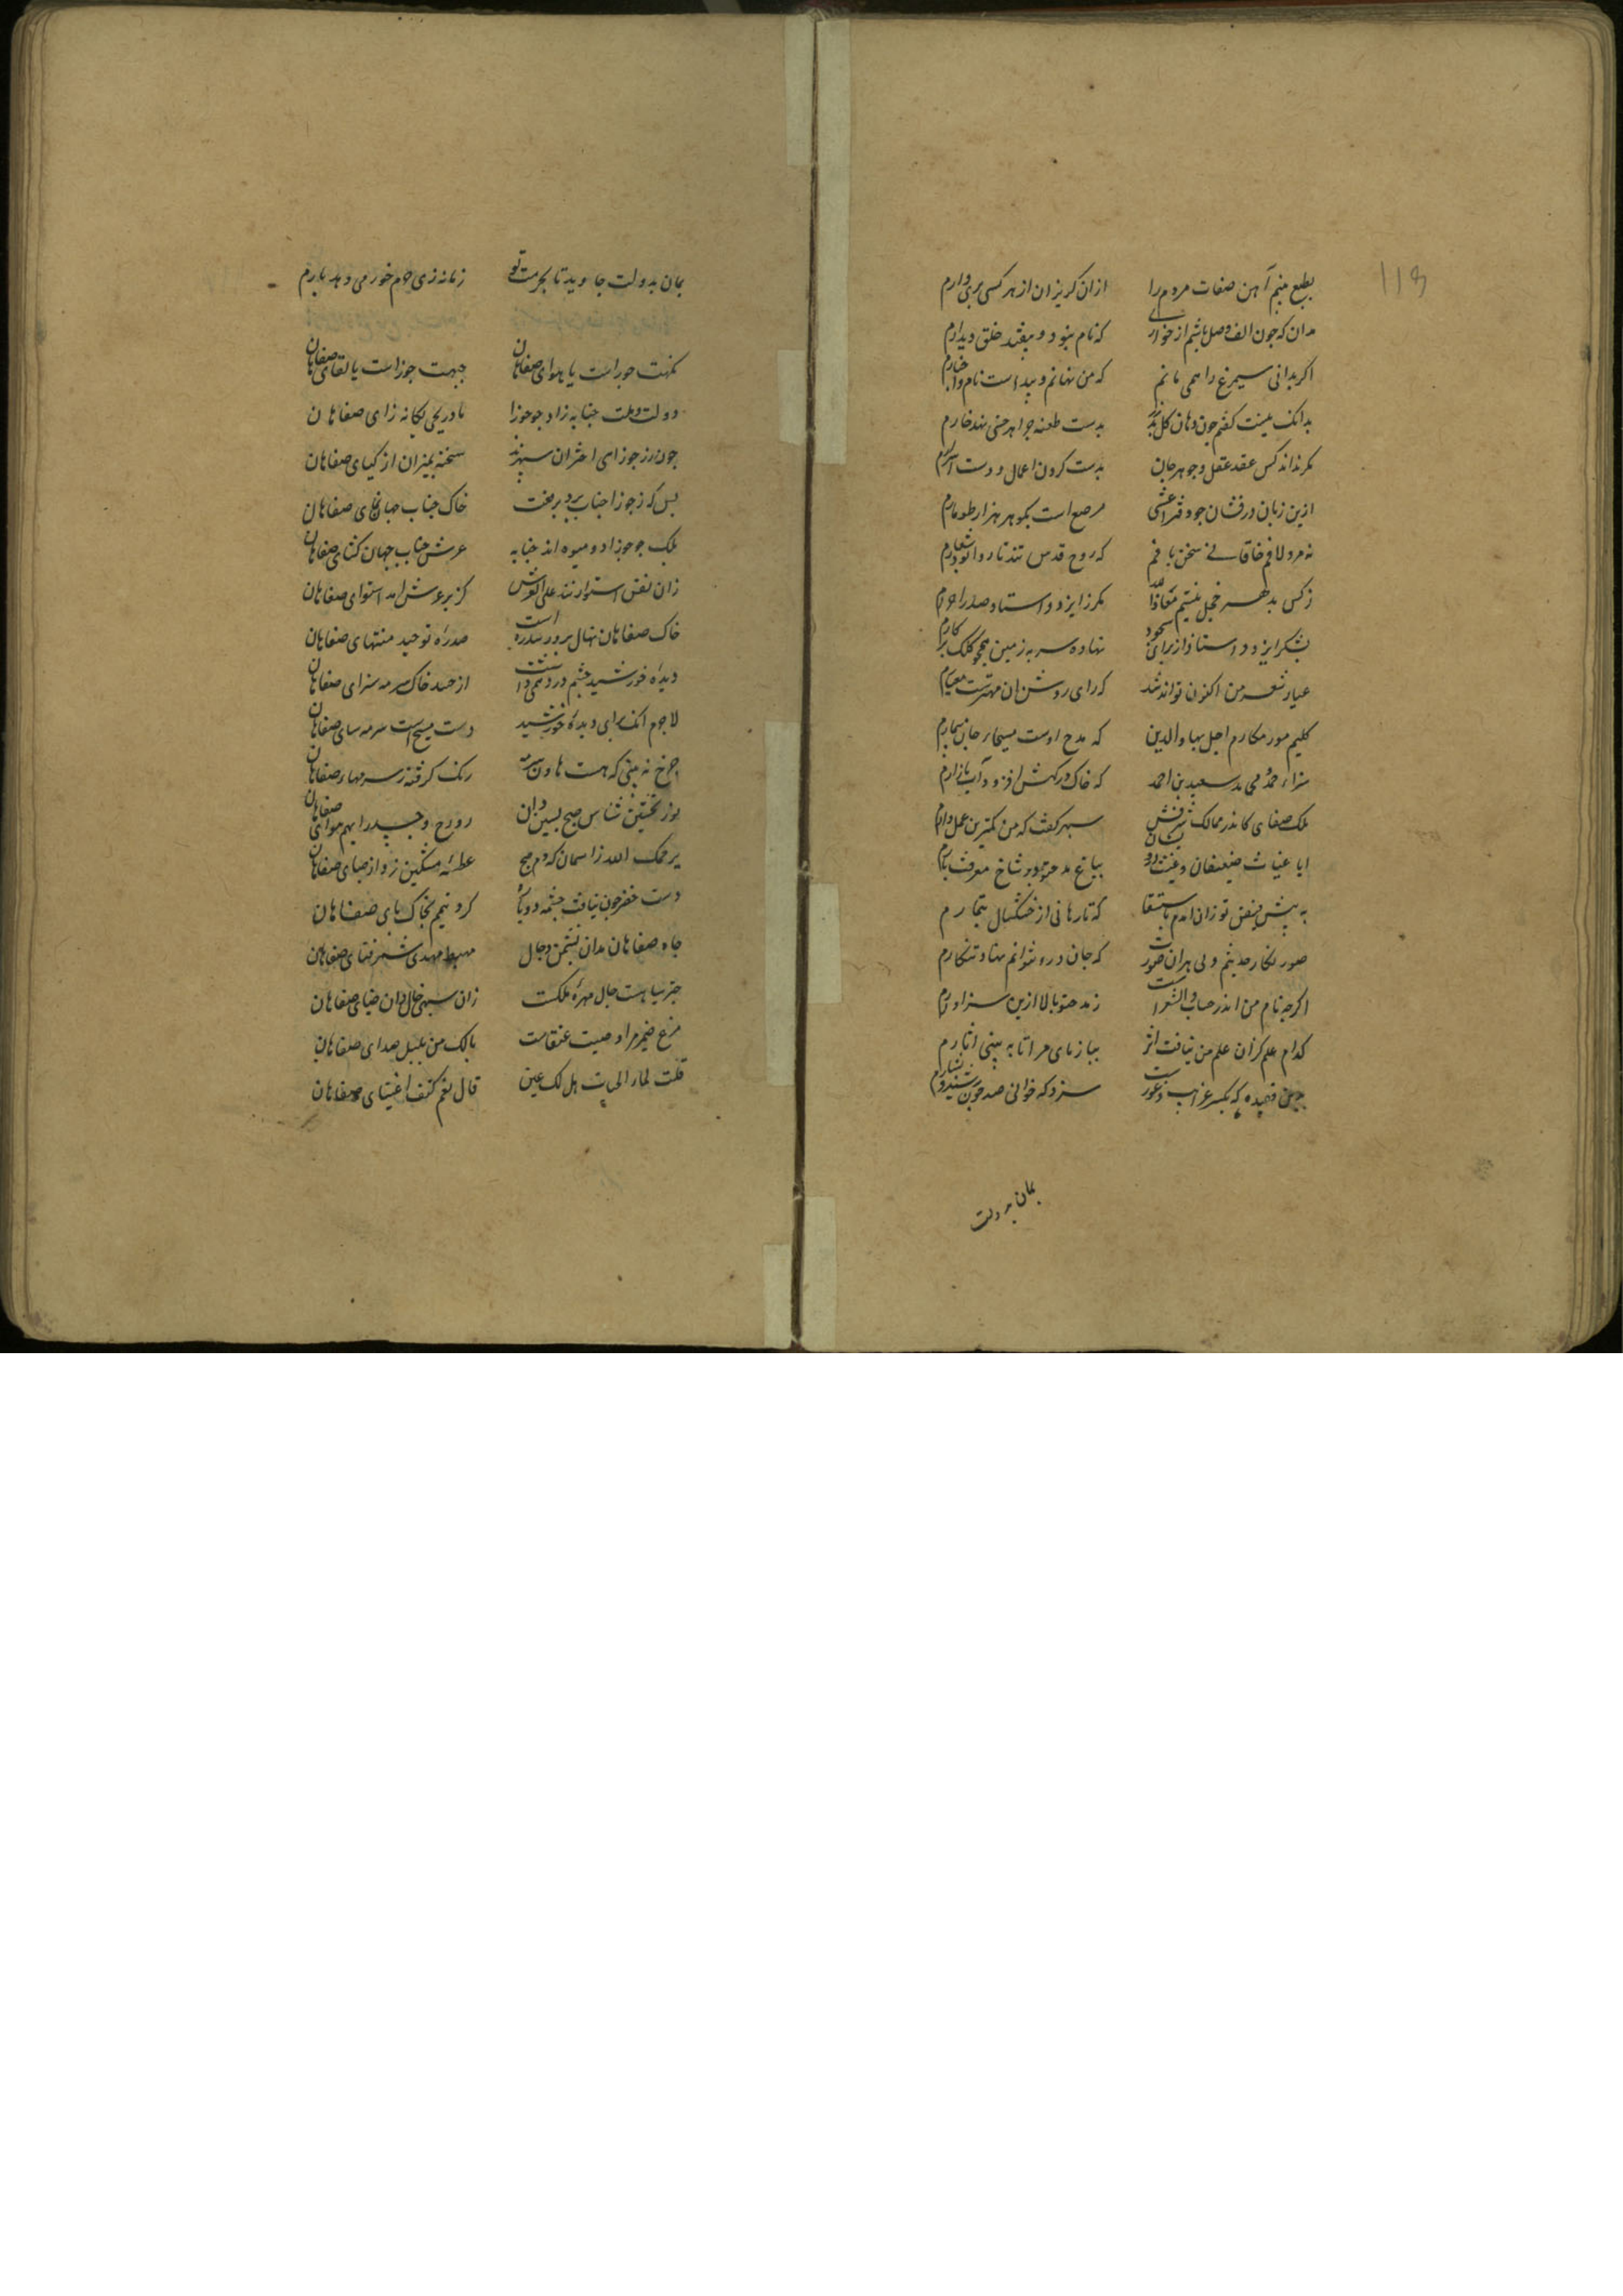 118
بطبع منبم آهن صفات مردم را ازان کریزان از هر کسی پری وارم
مدان که جون الف وصل باشم از خواری که نام نبود و بیفتد خلق دیدارم
اکر بدانی سیمرغ را همی مانم که من نهانم و پیداست نام و اخبارم
بدانک نیست کفم جون دهان کل بدست طعنه جواهر خسی نهد خارم
مکر نداند کس عقد عقل و جوهر جان بدست کردن اعمال و دست اسرارم
ازین زبان درفشان جو دفتر اعشی مرصع است بکوهر هزار طومارم
نه مرد لافم خاقانی سخن بافم که روح قدس تند تار و پود اشعارم
زکس بدهر خجل نیستم معاذالله مکر ز ایزد و استاد صدر احرارم
بشکر ایزد و استاد از برای سجود نهاده سر بزمین همجو کلک برکارم
عیار شعر من اکنون تواند شد که رای روشن ان مهترست معیارم
کلیم مور مکارم اجل بهاء الدین که مدح اوست مسیحا ز جان بیمارم
سزاء حمد محمد سعید بن احمد که خاک درکهش افزود آب بازارم
ملک صفای کاندر ممالک شرفش سبهر کفت که من کمترین عمل دارم
ایا غیاث ضعیفان و غیث بباغ مدحتو بر شاخ معرفت بارم
به پیش فیض تو زان امدم باستسقا که تا رهانی از خشکسال تیمارم
صور نکار حدیثم ولی بران صورت که جان درو نتوانم نهاد ننکارم
اکرجه نام من اندر حساب والشعراست زمدحتو بالا ازین سزاوارم
کدام علم کزان علم من نیافت اثر بیازمای مرا تا به بینی اثارم
بدین قصیده که یکسر غرایب و غررست سزد که خوانی صد جون رشید و بشارم
بمان بدولت
بمان بدولت جاوید تا بحرمت تو زمانه زی حرم خرمی دهد بارم
نکهت حوراست یا هوای صفاهان جبهت جوزاست یا لقای صفاهان
دولت و ملت جنابه زاد جو جوزا مادر یکی یکانه زای صفاهان
جون زر جوزای اختران سپهرند سخته بمیزان از کیای صفاهان
بس که ز جوزا جناب برد برفعت خاک جناب جهان نمای صفاهان
بلک جو جوزا دو میوه اند جنابه عرش و جناب جهان کشای صفاهان
زان نفس استوا زنند علی العرش کز بر عرش امد استوای صفاهان
خاک صفاهان نهال برور سدره است سدره توحید منتهای صفاهان
دیده خورشید جشم درد همی داشت از حسد خاک سرمه سزای صفاهان
لاجرم انک برای دیده خورشید دست مسیح است سرمه سای صفاهان
جرخ نه بینی که هست هاون سرمه رنک کرفته ز سرمهاء صفاهان
نور نخستین شناس صبح بسین دان روح و جسد را بهم هوای صفاهان
یرحمک الله زد اسمان که دم صبح عطسه مشکین زد از صبای صفاهان
دست خضر جون نیافت جشمه دوباره کرد تیمم بخاک بای صفاهان
جاه صفاهان مدان نشیمن دجال مهبط مهدی شمر فنای صفاهان
جتر سیاهست خال مهره ملکت زان سیهی خال دان ضیای صفاهان
مرغ ضمیر مرا و صیت عنقاست بانک من بلبل صدای صفاهان
قلت لماء الحیات هل لک عین قال نعم کتف اغنیای صفاهان